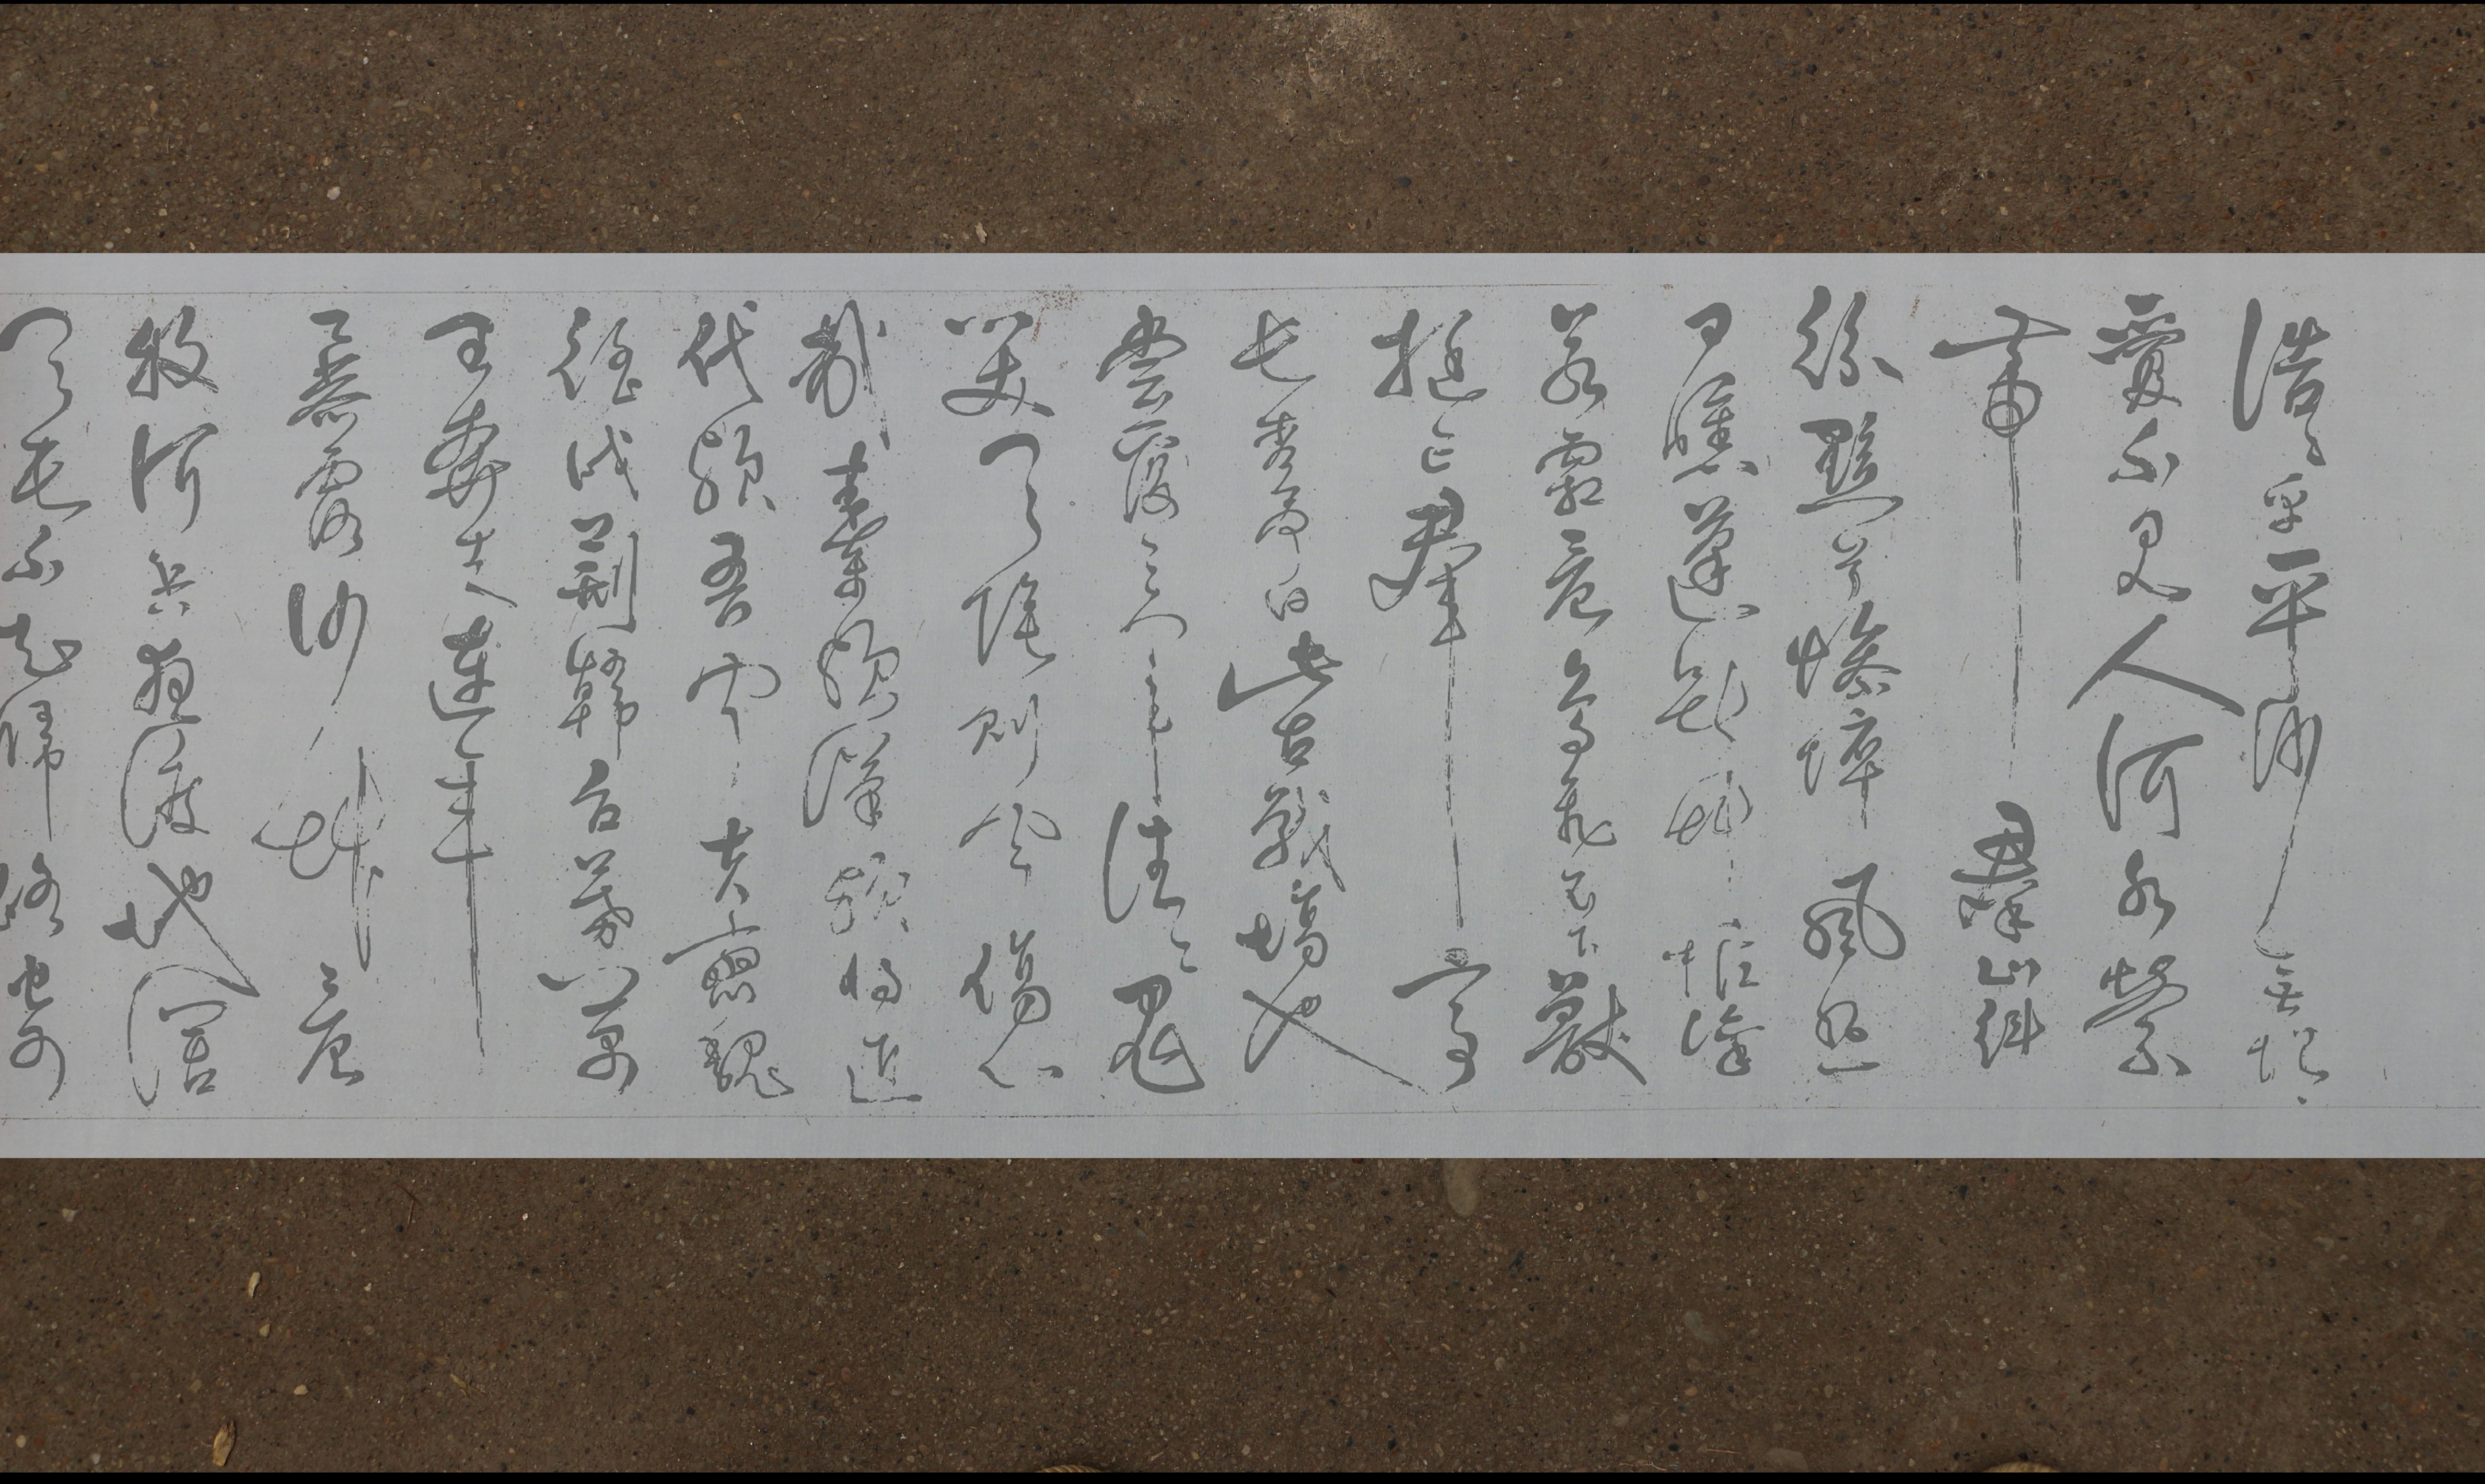 浩々乎平沙無垠
夐不見人河水縈
帶羣山糾
紛黯兮慘悴風悲
日曛蓬斷草枯凜
若霜晨鳥飛不下獸
挺亡羣亭
長告余曰此古戰場也
嘗覆三軍往々鬼
哭天陰則聞傷心
哉秦歟漢歟將近
代歟吾聞夫齊魏
徭戍荊韓召募萬
里奔走連年
暴露沙草晨
牧河冰夜渡地闊
天長不知歸路寄